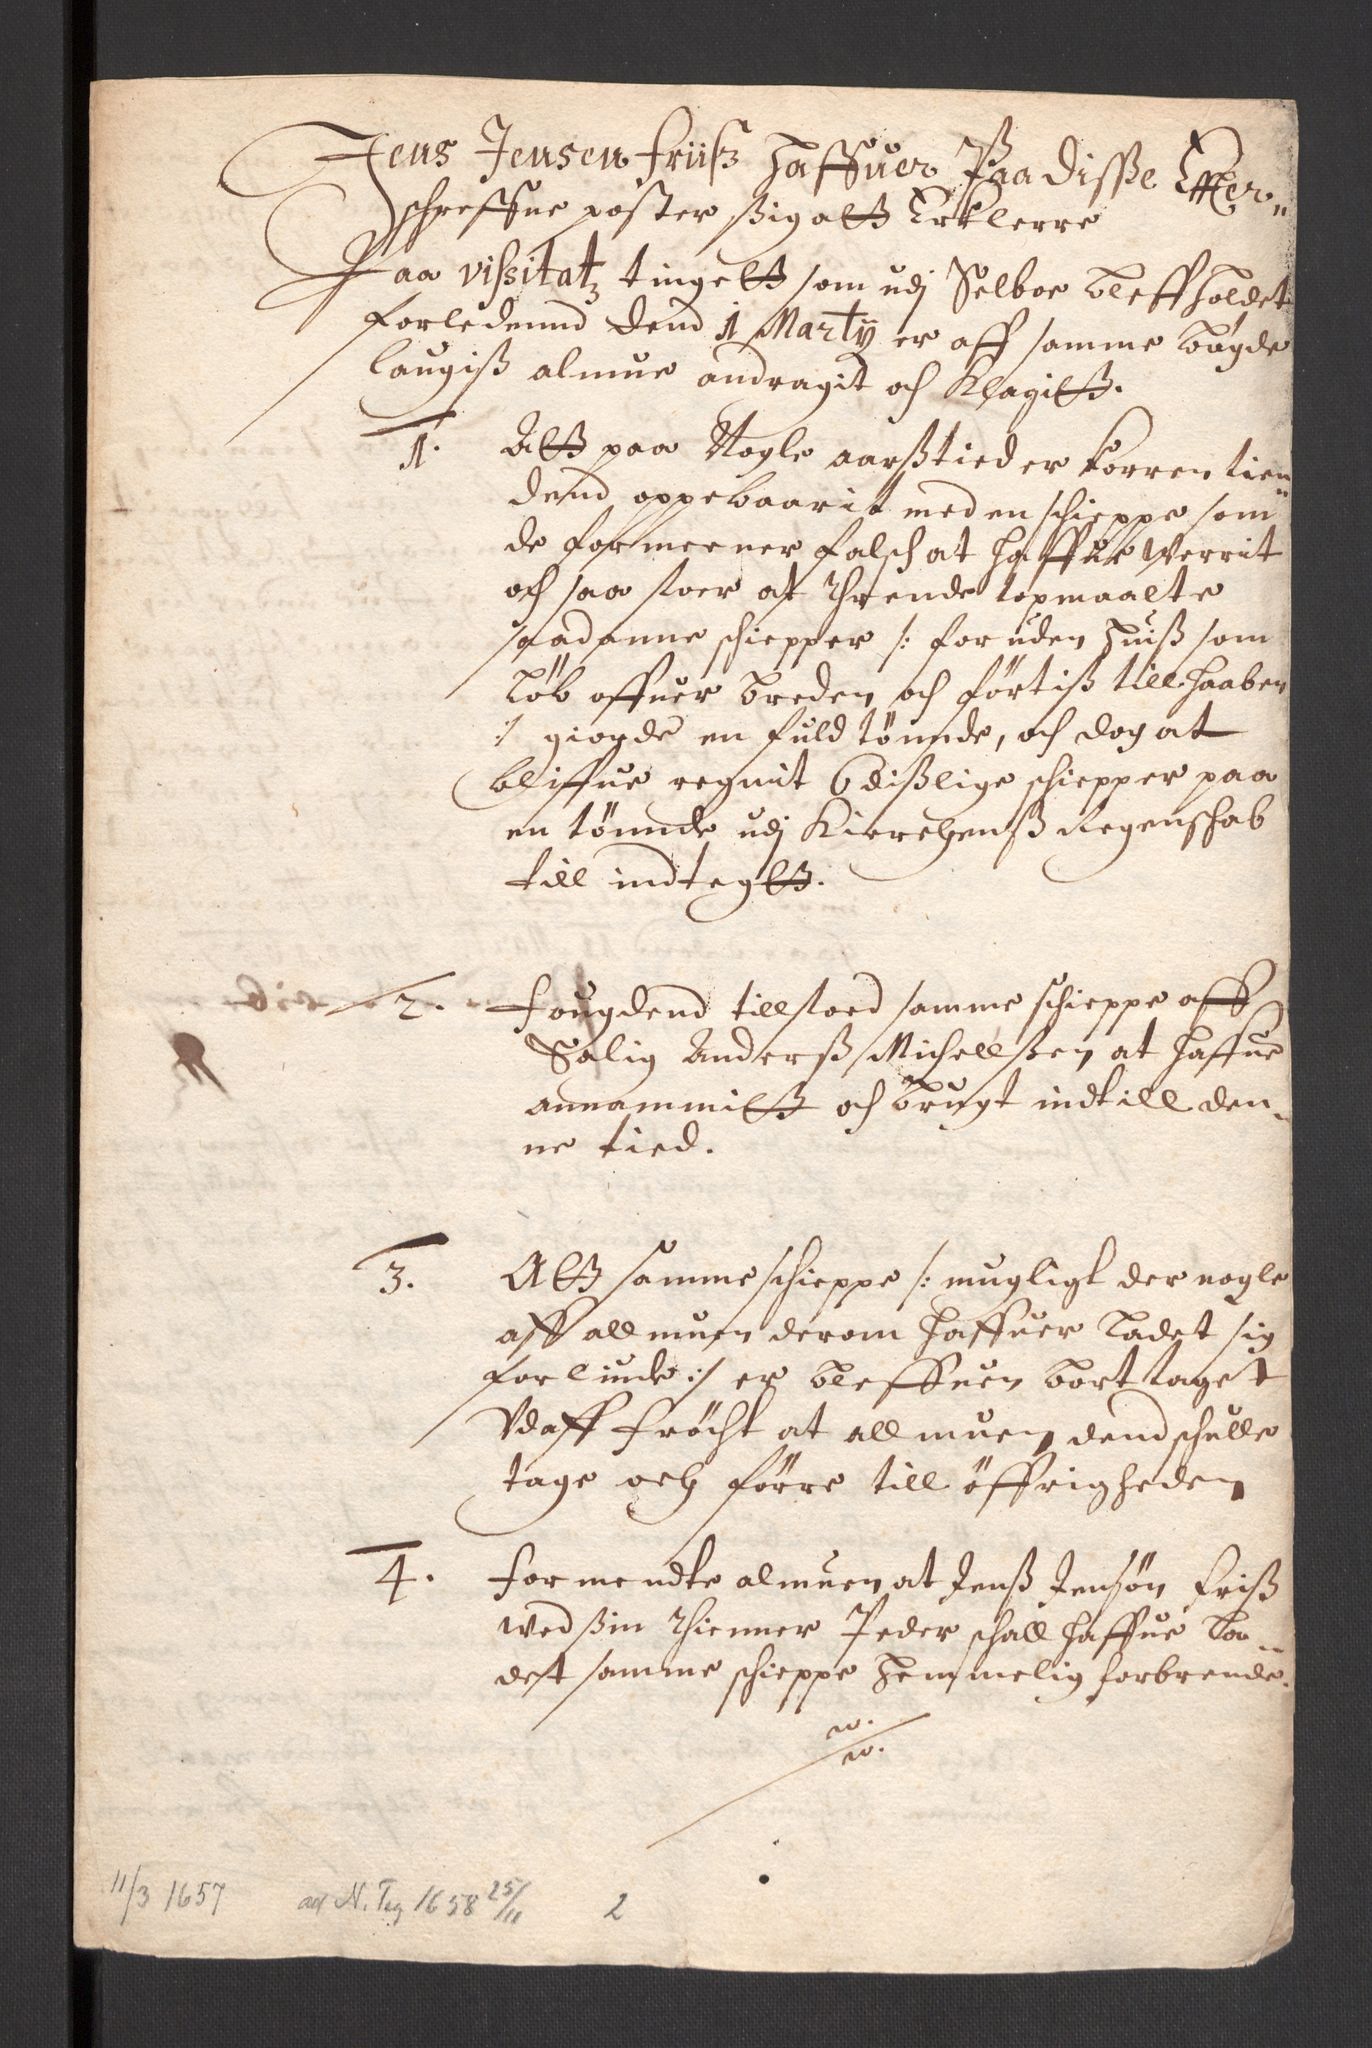 Jens Jensen friiss haffuer Paa disse Effter=
schreffne poster ssig altz Erklerre
Paa vissitatz tingett som udj Selboe bleff holdet
forledennd dend 1 Martij er aff samme bøgde
laugiss almue andragit och Klagitt.
1. Att paa Nogle aarsstied er korren tien=
dend oppebaarit med en schieppe som
de formeener falsch at haffue werrit
och saa stoer at thrende topmaalte
saadanne schiepper /: foruden huiss som
løb offuer breden och førtiss till haaben
:/ giorde en fuld tønnde, och dog at
bliffue regnnit 6 disslige schiepper paa
en tønnde udj Kierchenss Regenschab
till indtegtt.
2. Fougdend tillstoed samme schieppe aff
Salig Anderss Michellssen at haffue
annammitt och brugt indtill den=
ne tied.
3. Att samme schieppe /: mugligt der nogle
aff allmuen derom haffuer ladet sig
forliude :/ er bleffuen bort taget
Vdaff frøcht at allmuen dend schulle
tage och førre till øffrigheden
4. Formendte almuen at Jenss Jensøn friss
wed ssin thienner Peder schall haffue la=
det samme schieppe hemmelig forbrende.
11/3 1657 ad N. Teg 1658 25/11 2